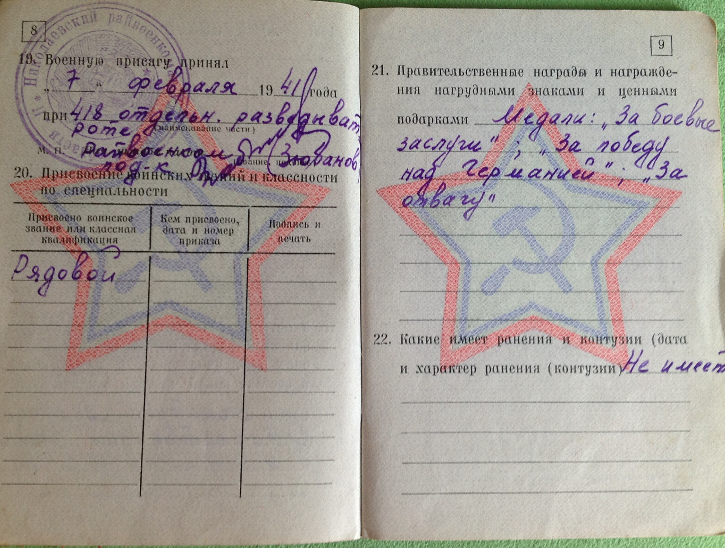 8
Николаевский райвоенкомат
19. Военную присягу принял
„ 7 „ февраля 1941 года
при 418 отдельн. разведыват.
роте
(наименование части)
М. П. Райвоенком
подп-к
20. Присвоение воинских званий и классности
по специальности
Присвоено воинское
звание или классная
квалификация
Кем присвоено,
дата и номер
приказа
Подпись и
печать
Рядовой
9
21. Правительственные награды и награжде-
ния нагрудными знаками и ценными
подарками Медали: „За боевые
заслуги"; „За победу
над Германией"; „За
отвагу"
22. Какие имеет ранения и контузии (дата
и характер ранения (контузии) Не имеет